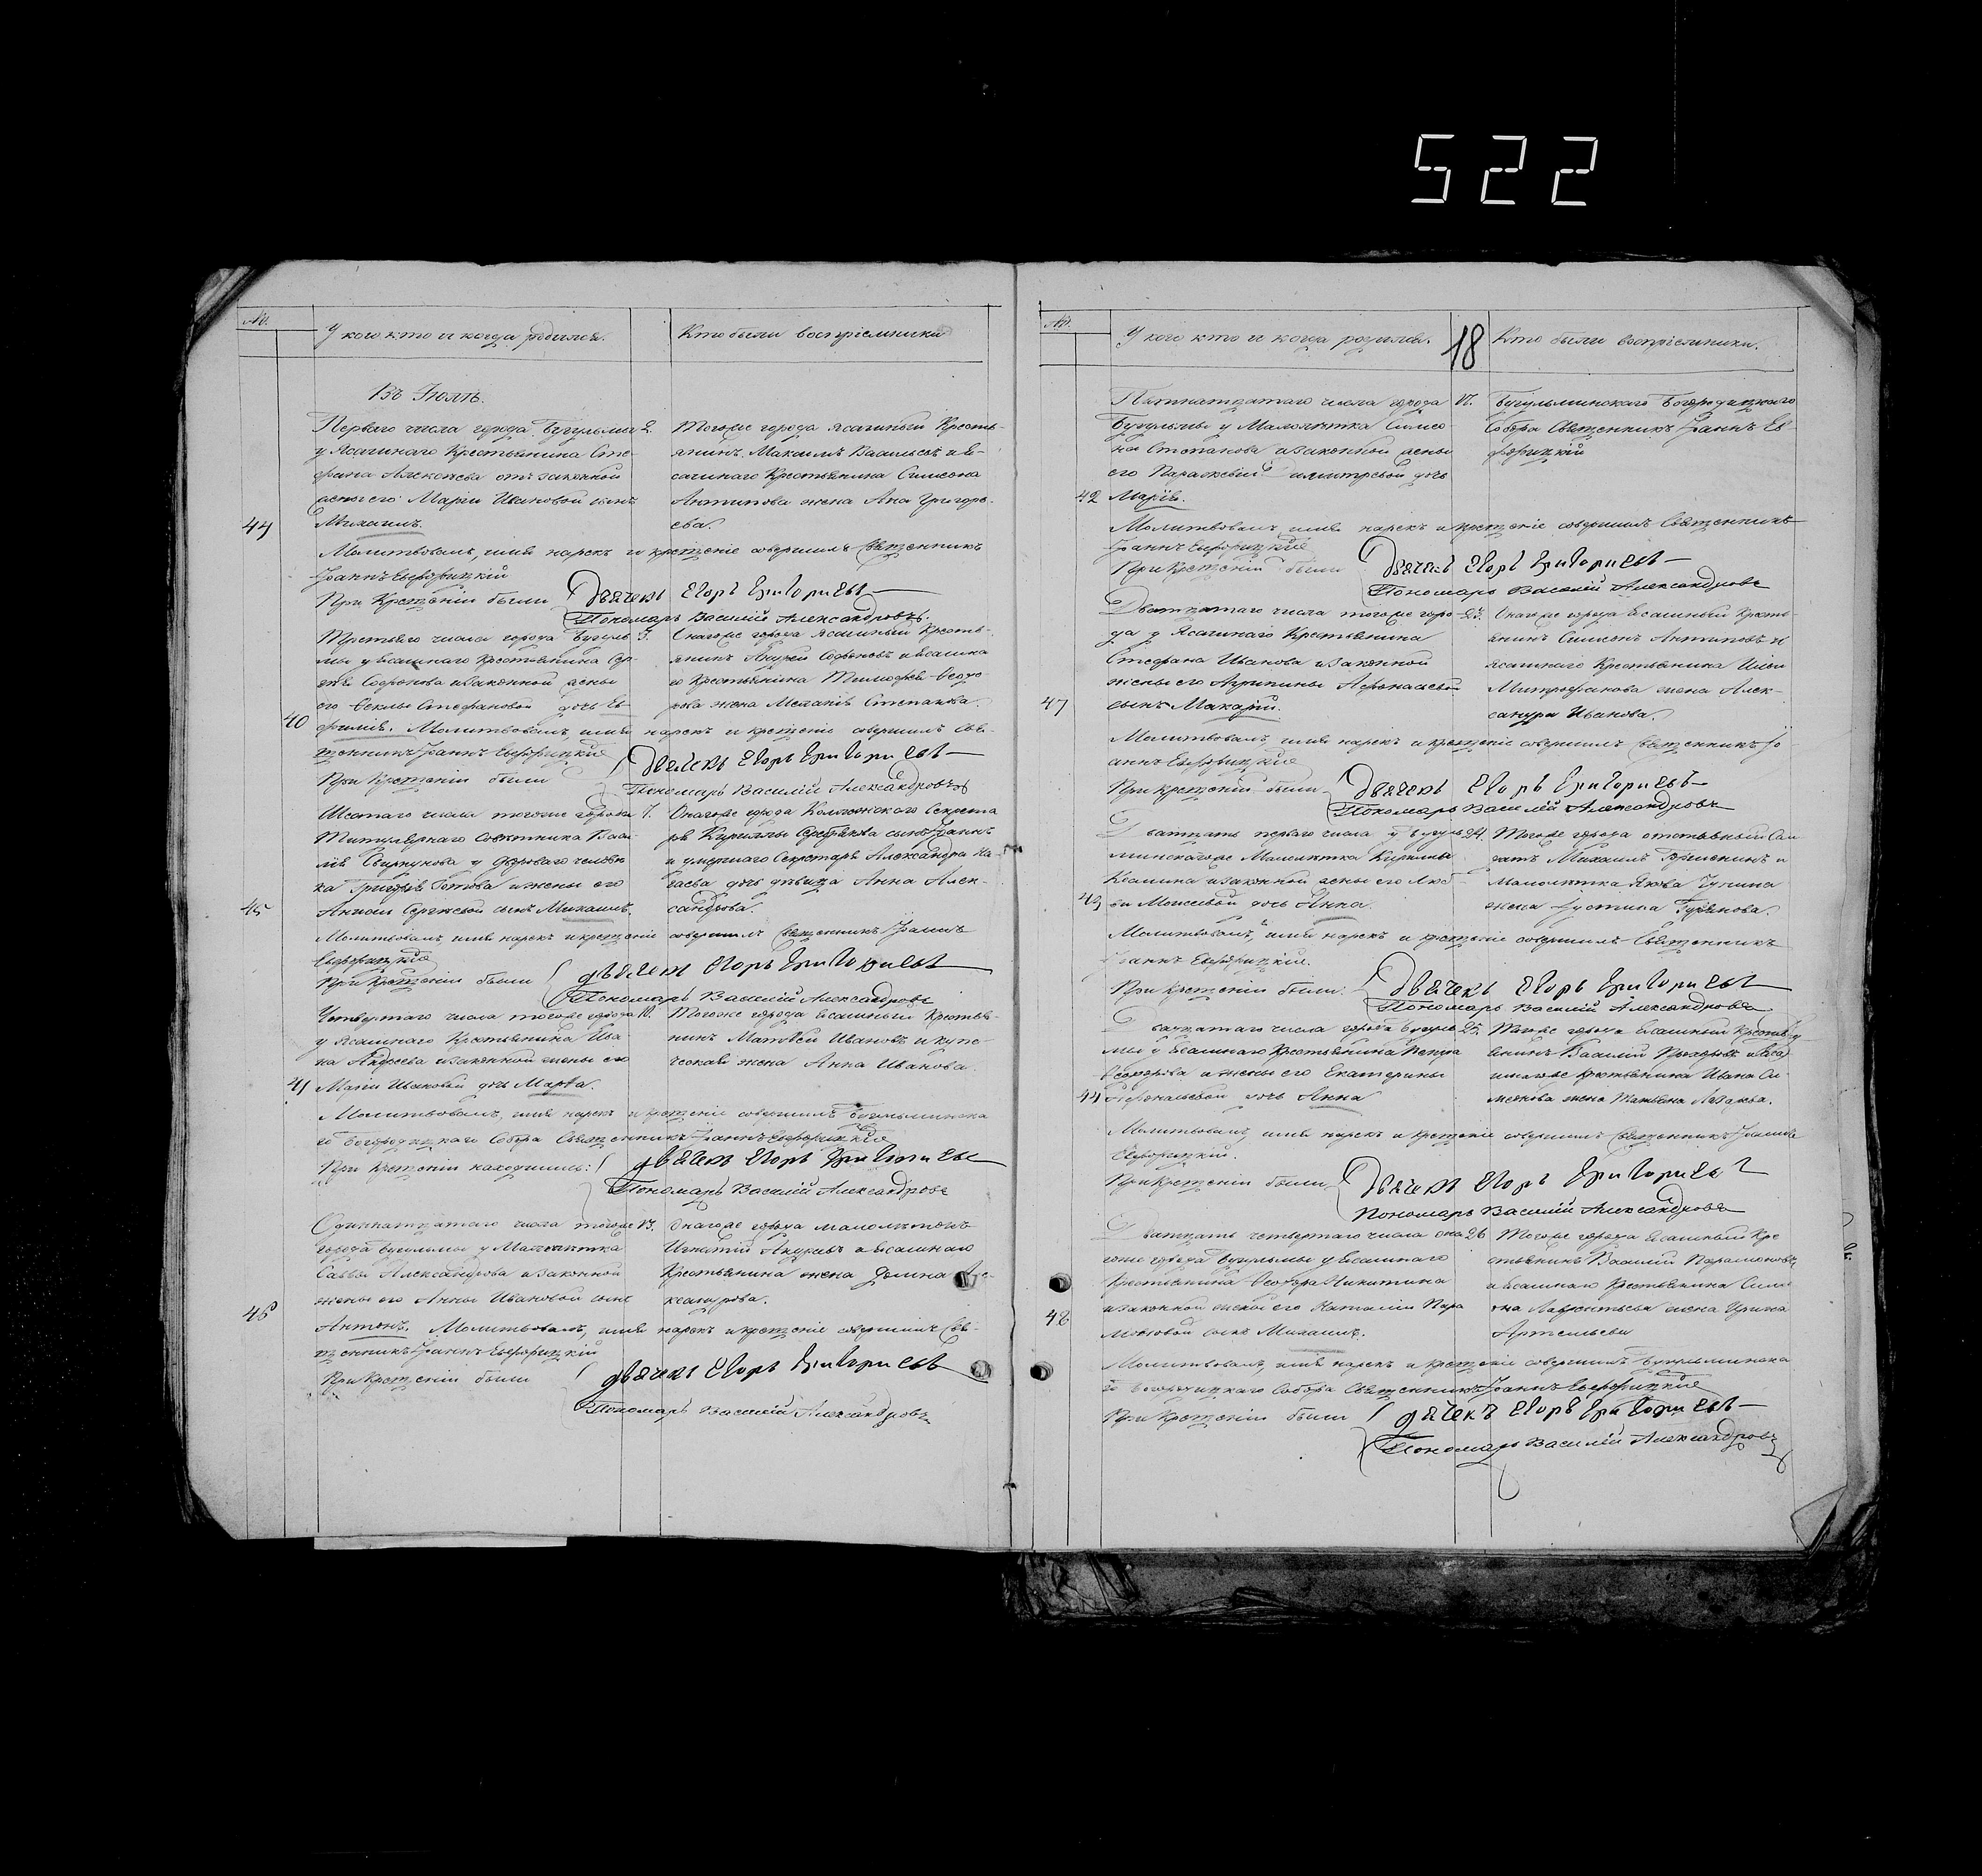 522
№.
У кого кто и когда родился.
Кто были воспріемники
Въ Іюлѣ.
Перваго числа города Бугульмы 2.
у Ясашнаго Крестьянина Сте-
фана Алексѣева отъ законной
жены его Маріи Ивановой сынъ
44 Михаилъ.
Тогоже города Ясашный Кресть-
янинъ Максимъ Васильевъ и Я-
сашнаго Крестьянина Симеона
Антипова жена Анна Григорь-
ева.
Молитвовалъ, имя нарекъ и крещеніе совершилъ Священникъ
Іоаннъ
При Крещеніи были Дьячекъ Егоръ Григорьевъ
Пономарь Василій Александровъ.
Третьяго числа города Бугуль- 3.
мы у Ясашнаго Крестьянина Сер-
гѣя Софронова и законной жены
его Ѳеклы Стефановой дочь Ев-
40 фимія. Молитвовалъ, имя нарекъ и крещеніе совершилъ Свя-
щенникъ Іоаннъ
Онагоже города Ясашный Кресть-
янинъ Андрей Софроновъ и Ясашна
го Крестьянина Тимофея Ѳедо
рова жена Меланія Степанова.
При Крещеніи были Дьячекъ Егоръ Григорьевъ
Пономарь Василій Александровъ
Шестаго числа тогоже города 7.
Титулярнаго Совѣтника Васи
лія у двороваго человѣ
ка Григорія и жены его
45 Сергѣевой сынъ Михаилъ.
Онагоже города Коллежскаго Секрета
ря Кириллы сынъ Іоаннъ
и умершаго Секретаря Александра
дочь дѣвица Анна Алек-
сандрова.
Молитвовалъ, имя нарекъ и крещеніе совершилъ Священникъ Іоаннъ
При Крещеніи были дьячекъ Егоръ Григорьевъ
Пономарь Василій Александровъ
Четвертаго числа тогоже города 10.
у Ясашнаго Крестьянина Ива
на Андреева и законной жены его
41 Маріи Ивановой дочь Марѳа.
Тогоже города Ясашный Крестья-
нинъ Матвѣй Ивановъ и купе-
ческая жена Анна Иванова.
Молитвовалъ, имя нарекъ и крещеніе совершилъ Бугульминска
го Богородицкаго Собора Священникъ Іоаннъ
При Крещеніи находились: дьячекъ Егоръ Григорьевъ
Пономарь Василій Александровъ
Одиннатцатаго числа тогоже 13.
города Бугульмы у Малолѣтка
Саввы Александрова и законной
жены его Анны Ивановой сынъ
46 Антонъ. Молитвовалъ, имя нарекъ и крещеніе совершилъ Свя-
щенникъ Іоаннъ
Онагоже города малолѣтокъ
Игнатій и Ясашнаго
Крестьянина жена
ксандрова.
При Крещеніи были дьячекъ Егоръ Григорьевъ
Пономарь Василій Александровъ
№.
У кого кто и когда родился.
18
Кто были воспріемники.
Пятнатцатаго числа города 17.
Бугульмы у Малолѣтка Симео
на Степанова и законной жены
его Параскевіи Димитріевой дочь
42 Марія.
Бугульминскаго Богородицкаго
Собора Священникъ Іоаннъ
Молитвовалъ, имя нарекъ и крещеніе совершилъ Священникъ
Іоаннъ
При Крещеніи были Дьячекъ Егоръ Григорьевъ
Пономарь Василій Александровъ
Дватцатаго числа тогоже горо- 23.
да у Ясашнаго Крестьянина
Стефана Иванова и законной
жены его Агрипины Афонасьевой
47 сынъ Макарій.
Онагоже города Ясашный Кресть-
янинъ Симеонъ Антиповъ и
Ясашнаго Крестьянина Ильи
Митрофанова жена Алек-
сандра Иванова.
Молитвовалъ, имя нарекъ и крещеніе совершилъ Священникъ Іо-
аннъ
При крещеніи были Дьячекъ Егоръ Григорьевъ
Пономарь Василій Александровъ
Дватцать перваго числа у Бугуль 24.
минскагоже Малолѣтка Кириллы
Козмина и законной жены его Люб-
43 ви Моисеевой дочь Анна.
Тогоже города отставный Сол
датъ Михаилъ и
Малолѣтка Якова
жена Іустина
Молитвовалъ, имя нарекъ и крещеніе совершилъ Священникъ
Іоаннъ
При крещеніи были: Дьячекъ Егоръ Григорьевъ
Пономарь Василій Александровъ
Дватцатаго числа города Бугуль 25.
мы у Ясашнаго Крестьянина Петра
и жены его Екатерины
44 дочь Анна
Тогоже города Ясашный Крестья
янинъ Василій и Яса
шнагоже Крестьянина Ивана Си-
меонова жена Татьяна Лазарева.
Молитвовалъ, имя нарекъ и крещеніе совершилъ Священникъ Іоаннъ
При крещеніи были Дьячекъ Егоръ Григорьевъ
Пономарь Василій Александровъ
Дватцать четвертаго числа она 26
гоже города Бугульмы у Ясашнаго
Крестьянина Ѳеодора Никитина
и законной жены его Наталіи Пара
48 моновой сынъ Михаилъ.
Тогоже города Ясашный Кре
стьянинъ Василій Парамоновъ
и Ясашнаго Крестьянина Симе
она Лаврентьева жена Ирина
Артемьева
Молитвовалъ, имя нарекъ и крещеніе совершилъ Бугульминска
го Богородицкаго Собора Священникъ Іоаннъ
При Крещеніи были дьячекъ Егоръ Григорьевъ
Пономарь Василій Александровъ